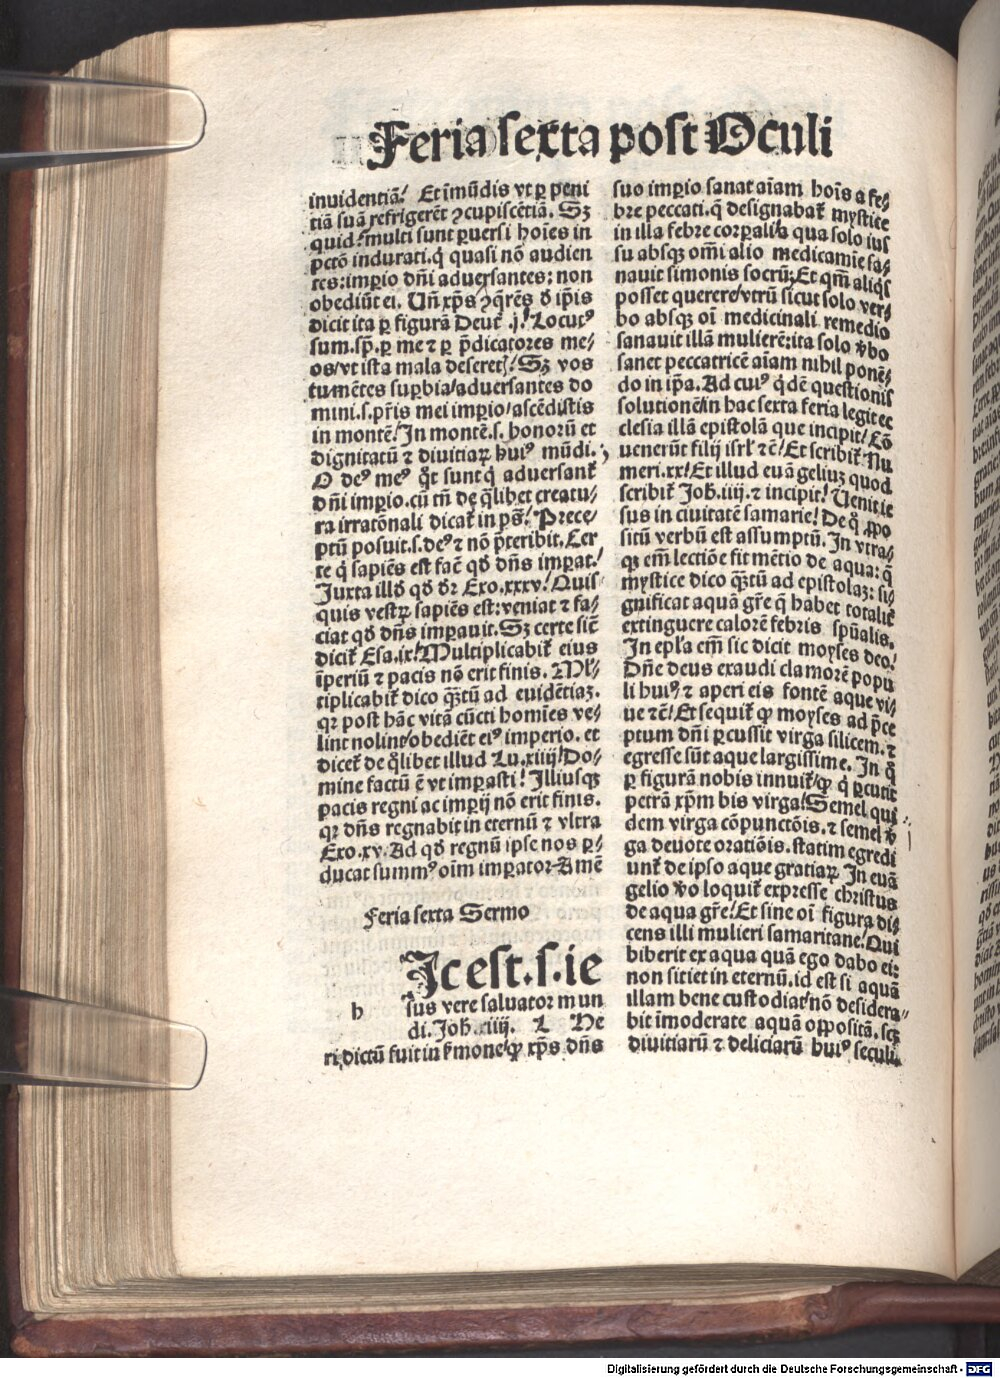 Feria sexta post Oculi
inuidentiā! Et īmūdis vt ꝑ peni
tiā suā refrigerēt ꝯcupiscētiā. Sꝫ
quid? multi sunt ꝑuersi hoīes in
pctō indurati. q̇ quasi nō audien
tes: imꝑio dn̄i aduersantes: non
obediūt ei. Un̄ xp̄s ꝯq̄rēs ð ip̄is
dicit ita ꝑ figurā Deut̄ .j.! Locutꝰ
sum .sp̄. ꝑ me ⁊ ꝑ p̄dicatores me⸗
os/vt ista mala deseret̄! Sꝫ vos
tumētes suꝑbia/aduersantes do
mini .s. pr̄is mei imꝑio/ascēdistis
in montē! In montē .s. honorū et
dignitatū ⁊ diuitiaꝝ huiꝰ mūdi.
O deꝰ meꝰ q̊t sunt q̇ aduersanť
dn̄i imꝑio. cū tn̄ de q̄libet creatu⸗
ra irratōnali dicať in ps̄! Prece⸗
ptū posuit .s. deꝰ ⁊ nō p̄teribit. Cer
te q̇ sapiēs est fac̄ qð dn̄s imꝑat!
Juxta illð qð dr̄ Exo. xxxv! Quis⸗
quis vestrꝝ sapiēs est: veniat ⁊ fa⸗
ciat qð dn̄s imꝑauit. Sꝫ certe sic̄
dicit̄ Esa. ix! Multiplicabiť eius
īperiū ⁊ pacis nō erit finis. Ml̄⸗
tiplicabiť dico q̄ꝫtū ad euidētiaꝫ.
qꝛ post hāc vitā cūcti homīes ve⸗
lint nolint/obediēt eiꝰ imperio. et
diceť de q̄libet illud Lu. xiiij! Do⸗
mine factū ē vt imꝑasti! Illiusqꝫ
pacis regni ac imꝑij nō erit finis.
qꝛ dn̄s regnabit in eternū ⁊ vltra
Exo. xv. Ad qð regnū ipse nos ꝑ⸗
ducat summꝰ oīm imꝑator Amē
Feria sexta Sermo
Ic est .s. ie
h sus vere saluator mun
di. Joh. iiij. L He
ri dictū fuit in ẜmone/ꝙ xp̄s dn̄s
suo imꝑio sanat aīam hoīs a fe⸗
bre peccati. q̄ designabať mystice
in illa febre corꝑali/a qua solo ius
su absqꝫ om̄i alio medicamīe sa⸗
nauit simonis socrū: Et qm̄ aliq̇s
posset querere/vtrū sicut solo ver⸗
bo absqꝫ oī medicinali remedio
sanauit illā mulierē: ita solo v̊bo
sanet peccatricē aīam nihil ponē⸗
do in ip̄a. Ad cuiꝰ q̇dē questionis
solutionē/in hac sexta feria legit ec
clesia illā epistolā que incipit! Cō
uenerūt filij isrł ⁊c̄! Et scribiť Nu
meri. xx! Et illud euāgeliuꝫ quod
scribiť Joh. iiij. ⁊ incipit! Uenit ie
sus in ciuitatē samarie! De q̊ ꝓpo
sitū verbū est assumptū. In vtra⸗
qꝫ em̄ lectiōe fit mētio de aqua: q̄
mystice dico q̄ꝫtū ad epistolaꝫ: si⸗
gnificat aquā gr̄e q̄ habet totaliť
extinguere calorē febris spūalis.
In epl̄a em̄ sic dicit moyses deo!
Dn̄e deus exaudi clamorē popu
li huiꝰ ⁊ aperi eis fontē aque vi⸗
ue ⁊c̄! Et sequiť ꝙ moyses ad p̄ce
ptum dn̄i ꝑcussit virga silicem. ⁊
egresse sūt aque largissime. In q̊
ꝑ figurā nobis innuiť/ꝙ q̇ ꝑcutit
petrā xp̄m bis virga! Semel qui
dem virga cōpunctōis. ⁊ semel v̊
ga deuote oratiōis. statim egredi
unť de ipso aque gratiaꝝ. In euā
gelio v̊o loquiť expresse christus
de aqua gr̄e! Et sine oī figura di⸗
cens illi mulieri samaritane! Qui
biberit ex aqua quā ego dabo ei:
non sitiet in eternū. id est si aquā
illam bene custodiat/nō desidera⸗
bit īmoderate aquā oppositā. scꝫ
diuitiarū ⁊ deliciarū huiꝰ seculi.
Digitalisierung gefördert durch die Deutsche Forschungsgemeinschaft - DFG